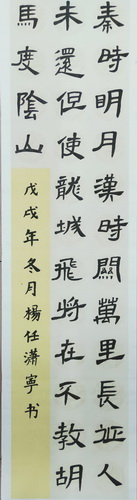 秦時明月漢時關萬里長征人
未還但使龍城飛將在不教胡
馬度陰山
戊戌年冬月楊任瀟寧书